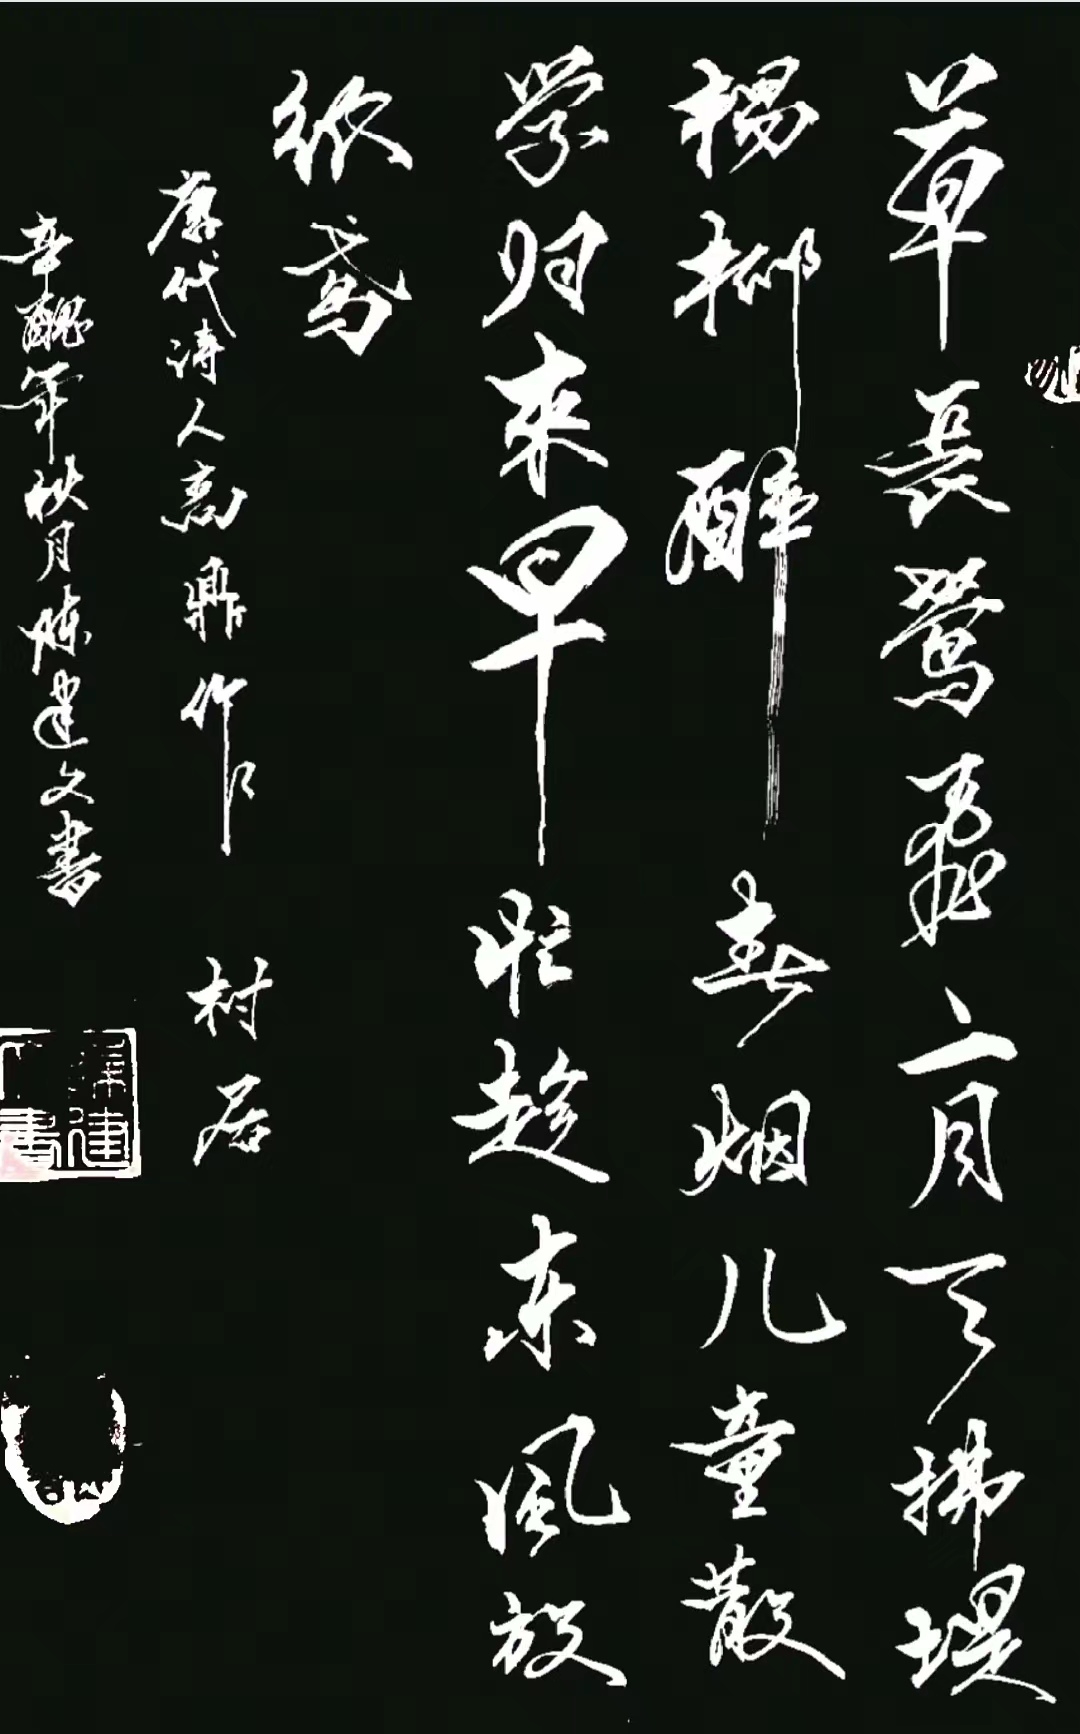 草长莺飞二月天拂堤
杨柳醉春烟儿童散
学归来早忙趁东风放
纸鸢
唐代诗人高鼎作 村居
辛醜年秋月陈建文書